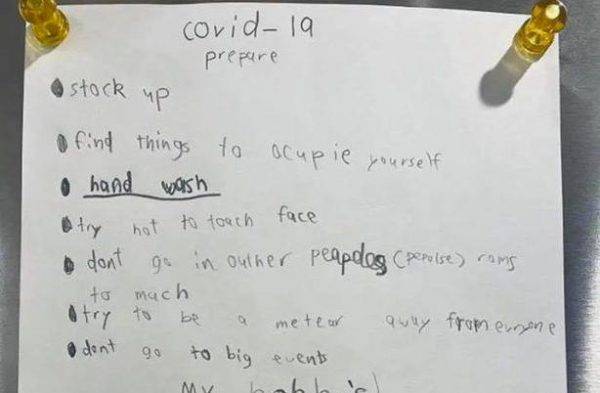 covid-19
prepare
stock up
find things to ocupie yourself
hand wash
try not to toach face
dont go in outher peapdes (pepolse) roms
to mach
try to be a metear away from
dont go to big events
My